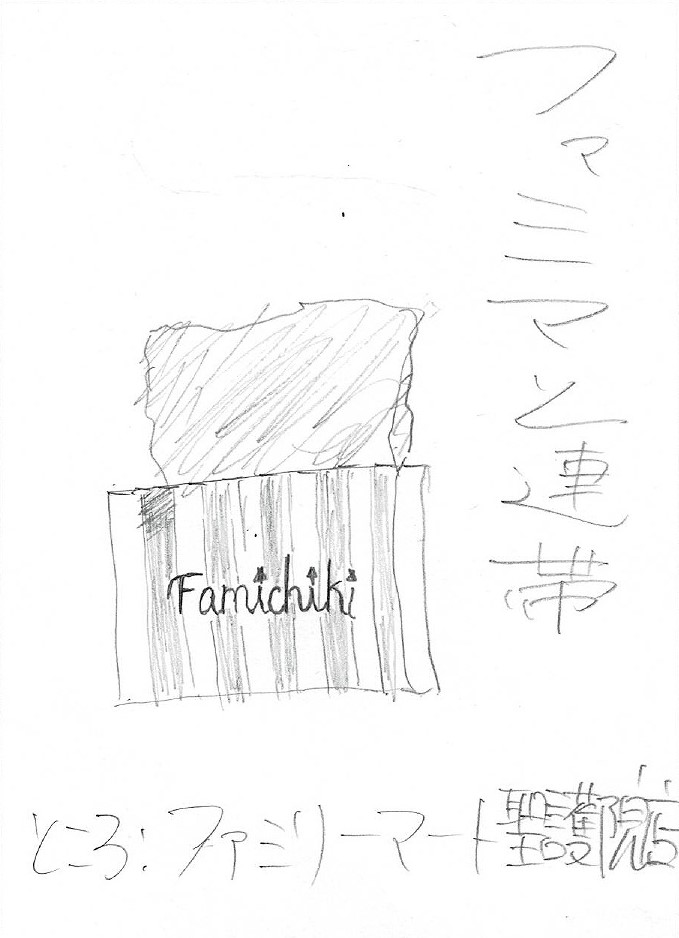 ファミマと連帯
Famichiki
ところ:ファミリーマート聖護院店